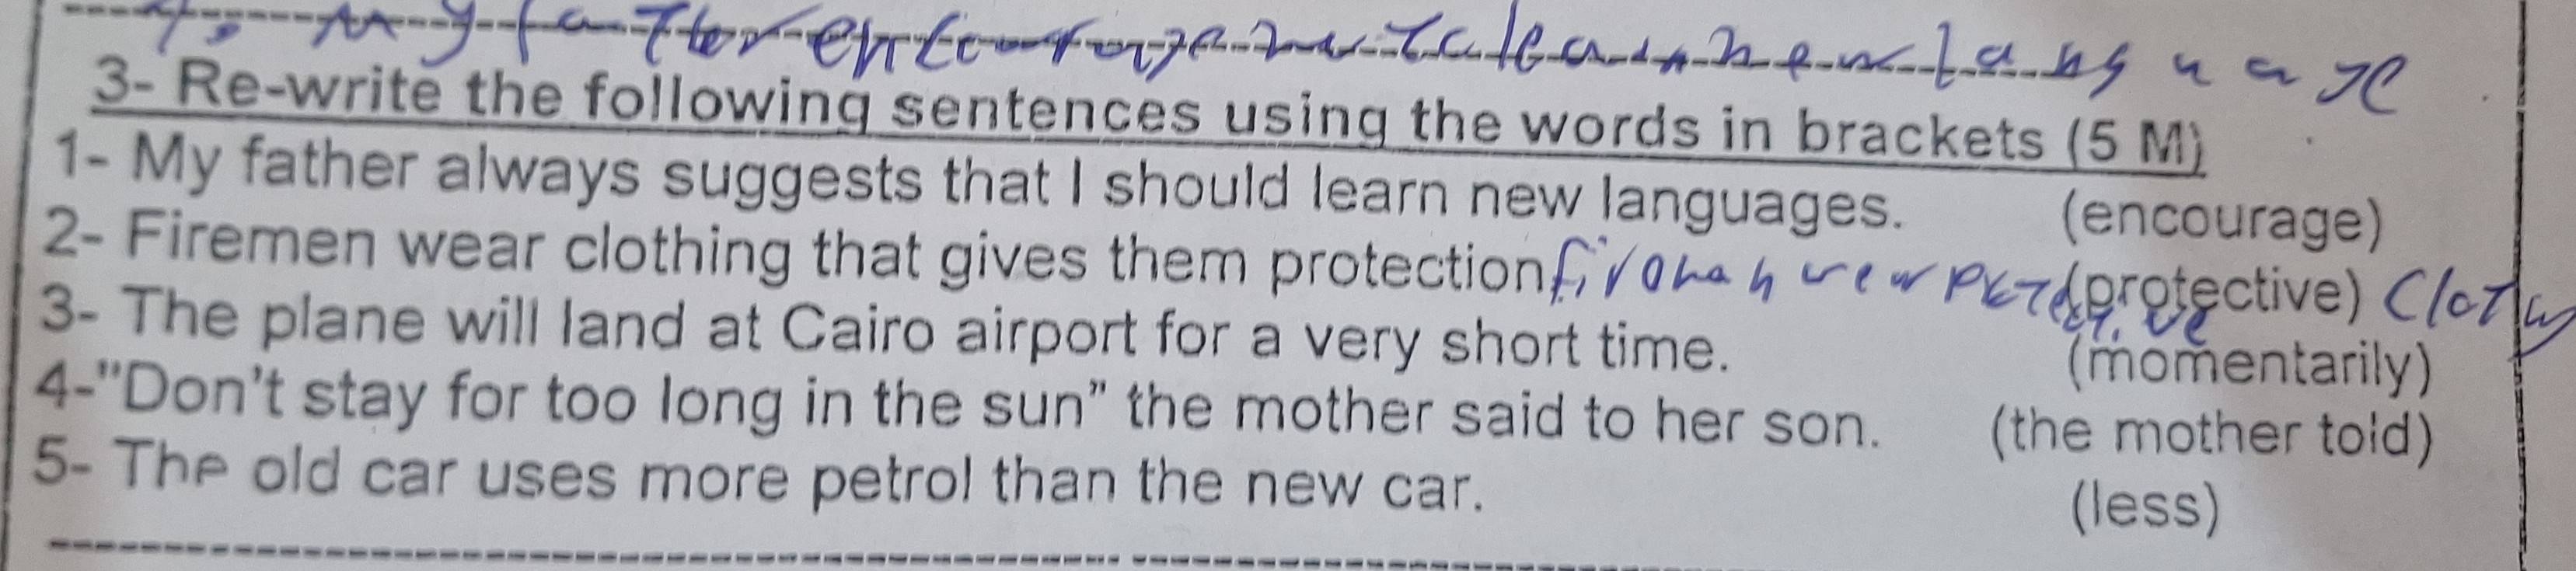 my father encourage me to learn new language
3- Re-write the following sentences using the words in brackets (5 M)
1- My father always suggests that I should learn new languages. (encourage)
2- Firemen wear clothing that gives them protection (protective)
3- The plane will land at Cairo airport for a very short time. (momentarily)
4-"Don't stay for too long in the sun" the mother said to her son. (the mother told)
5- The old car uses more petrol than the new car. (less)